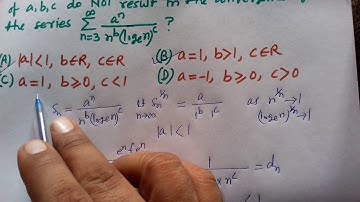 of a,b,c do NOT result in the convergence of
the series ∑_{n=3}^{∞} a^n / n^b (log_e n)^c ?
(A) |a|<1, b∈R, c∈R (B) a=1, b>1, c∈R
(C) a=1, b≥0, c<1 (D) a=-1, b≥0, c>0
S_n = a^n / n^b (log_e n)^c lt_{n→∞} S_n^{1/n} = a / 1^b 1^c as n^{1/n}→1
(log n)^{1/n}→1
|a|<1
= d_n